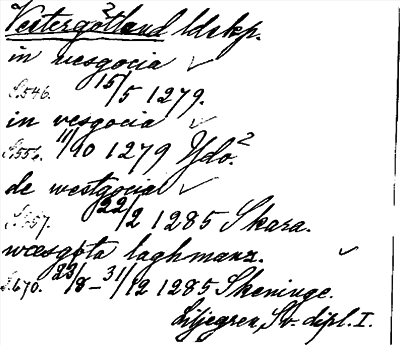 Vestergötland ldskp.
in vesgocia
S. 546. 15/5 1279.
in vesgocia
S. 556. 11/10 1279 Ydö.
de westgocia
S. 657. 22/2 1285 Skara.
wæsgøta laghmanz.
S. 670. 23/8–31/12 1285 Skeninge.
Liljegren, Sv. dipl. I.